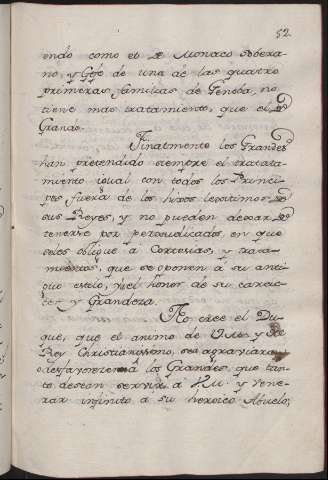 52
endo como el de Monaco Sobera-
no, y Gefe de una de las quatro
primeras familias de Genoba, no
tiene mas tratamiento, que el de
Grande.
Finalmente los Grandes
han pretendido siempre el tratta-
miento igual con todos los Princi-
pes fuera de los hixos lexitimos de
sus Reyes, y no pueden dexar de
tenerse por perxudicados en que
seles oblique à Cortesias, y trata-
mientos, que se oponen à su anti-
guo estilo, y el honor de su carac-
ter, y Grandeza.
No cree el Du-
que, que el animo de V.M. y del
Rey Christianissimo, sea agraviar
desfavorecer à los Grandes, que tan-
to desean servir à V.M. y vene-
rar infinito a su heroico Abuelo,